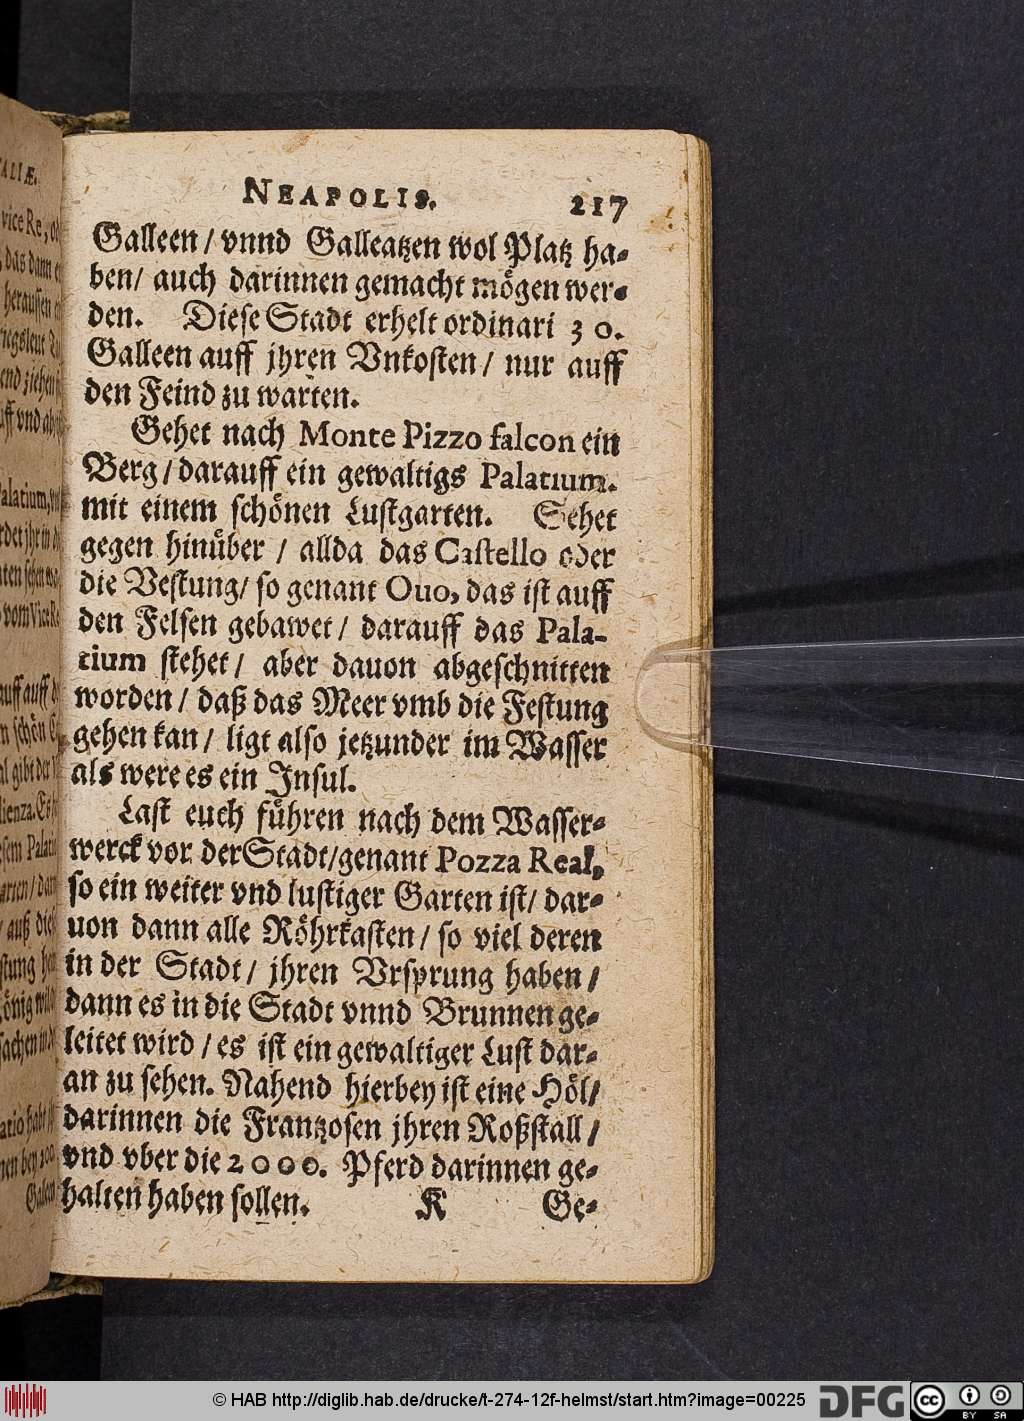 NEAPOLIS. 217
Galleen / vnnd Galleatzen wol Platz ha-
ben/ auch darinnen gemacht mögen wer-
den. Diese Stadt erhelt ordinari 30.
Galleen auff jhren Vnkosten / nur auff
den Feind zu warten.
Gehet nach Monte Pizzo falcon ein
Berg / darauff ein gewaltigs Palatium.
mit einem schönen Lustgarten. Sehet
gegen hinüber / allda das Castello oder
die Vestung/ so genant Ouo, das ist auff
den Felsen gebawet / darauff das Pala-
tium stehet / aber dauon abgeschnitten
worden / daß das Meer vmb die Festung
gehen kan / ligt also jetzunder im Wasser
als were es ein Insul.
Last euch führen nach dem Wasser-
werck vor der Stadt/genant Pozza Real,
so ein weiter vnd lustiger Garten ist/ dar-
uon dann alle Röhrkasten / so viel deren
in der Stadt / jhren Vrsprung haben /
dann es in die Stadt vnnd Brunnen ge-
leitet wird / es ist ein gewaltiger Lust dar-
an zu sehen. Nahend hierbey ist eine Höl/
darinnen die Frantzosen jhren Roßstall /
vnd vber die 2000. Pferd darinnen ge-
halten haben sollen. K Ge-
ALIÆ.
vice Re,
das dann
heraussen
end ziehen
vnd
Palatium,
vom Vice Re
auff auff
schön
gibt der
sachen
© HAB http://diglib.hab.de/drucke/t-274-12f-helmst/start.htm?image=00225
DFG
cc BY SA